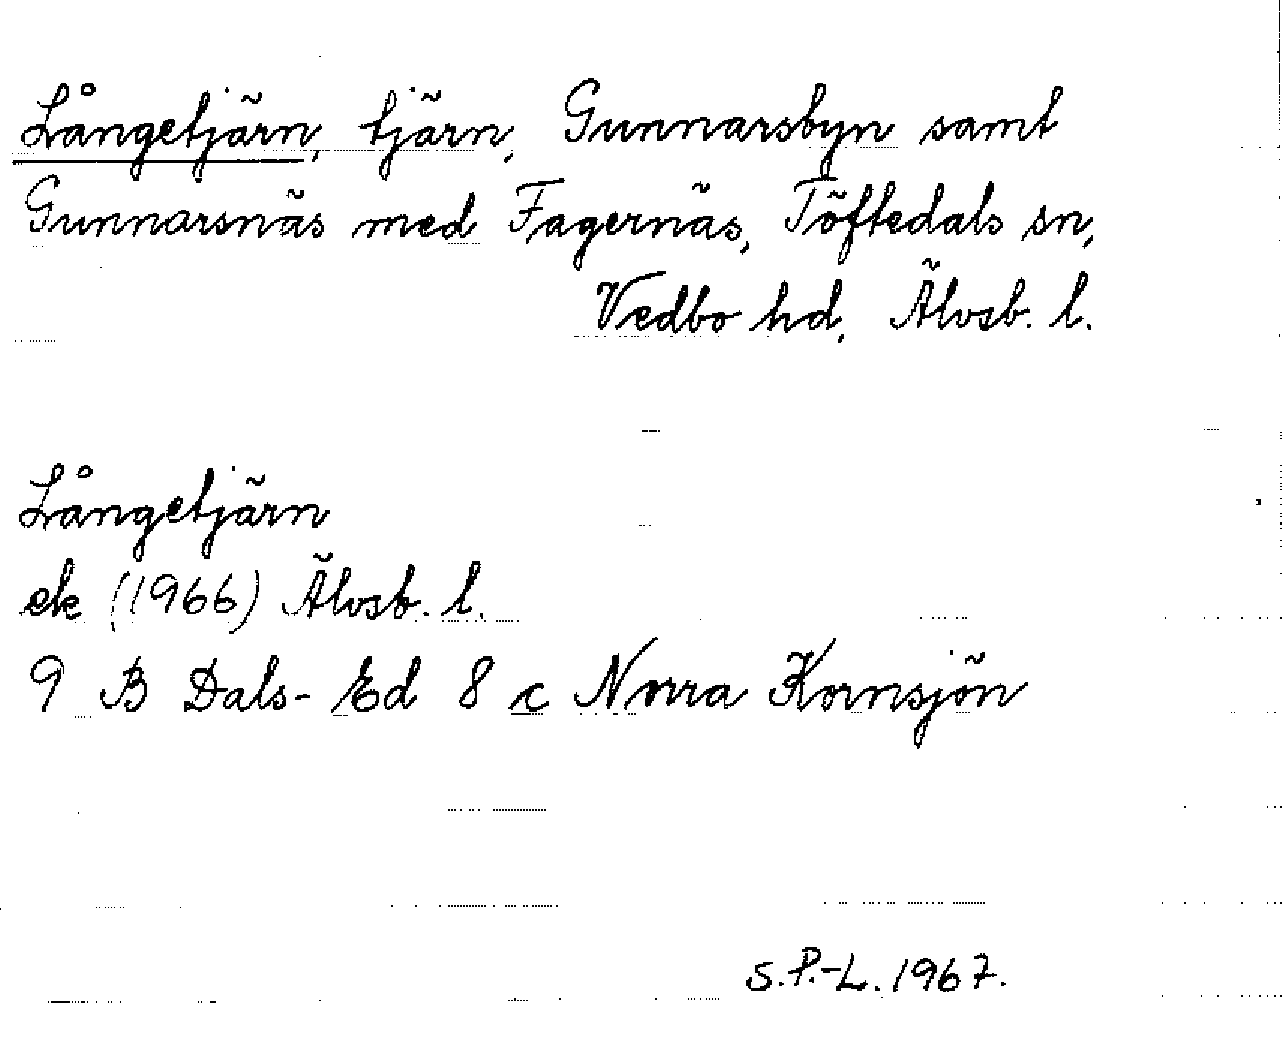 Långetjärn, tjärn, Gunnarsbyn samt
Gunnarsnäs med Fagernäs, Töftedals sn,
Vedbo hd, Älvsb. l.
Långetjärn
ek (1966) Älvsb. l.
9 B Dals-Ed 8 c Norra Kornsjön
S.P.-L. 1967.